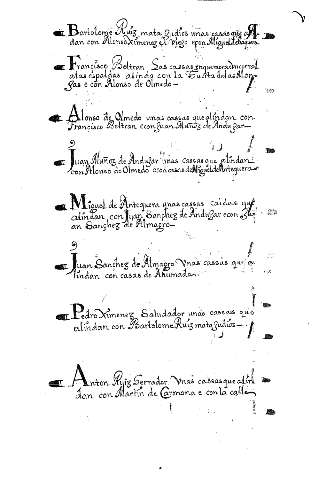 Bartolome Ruiz mata Judios unas casas que a
dan con Alonso Ximenez el Viejo con Miguel de
Francisco Beltran. Las casas
a las espaldas alinda con la de las Mon
gas e con Alonso de Olmedo—
Alonso de Olmedo unas casas que alindan con
Francisco Beltran e con Juan Muñoz de Andujar—
Juan Muñoz de Andujar unas casas que alindan
con Alonso de Olmedo e con casas de Miguel de Antequera
Miguel de Antequera unas casas caidas que
alindan con Juan Sanchez de Andujar e con Ju
an Sanchez de Almagro—
Juan Sanchez de Almagro Unas casas que a
lindan con casas de Ahumada.
Pedro Ximenez Saludador unas casas que
alindan con Bartolome Ruiz mata Judios—
Anton Ruiz Serrador Unas casas que alin
dan con Martin de Carmona e con la calle